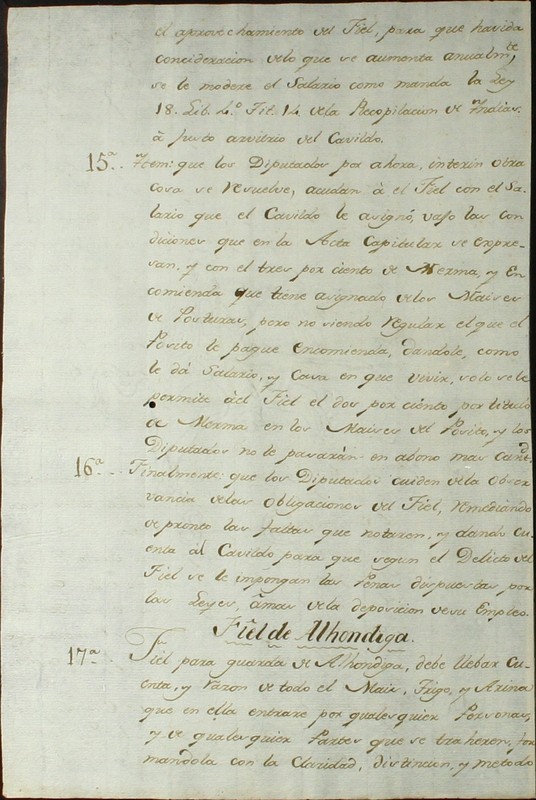 el aprovechamiento del Fiel, para que havida
concideracion delo que se aumenta anualmte
se le modere el Salario como manda la Ley
18. Lib. 4.º Tit. 14 dela Recopilacion de Yndias.
â Justo arvitrio del Cavildo.
15.ª Ytem: que los Diputados por ahora, interin otra
cosa se resuelve, acudan â el Fiel con el Sa-
lario que el Cavildo le asignó, vajo las con
diciones que en la Acta Capitular se expre-
san, y con el tres por ciento de Merma, y En
comienda que tiene asignado delos Maises
de Posturas, pero no siendo regular el que el
Posito le pague encomienda, dandole, como
le dá Salario, y Casa en que vivir, solo se le
permite âel Fiel el dos por ciento por titulo
de Merma en los Maises del Posito, y los
Diputados no le pasarán en abono mas cantd.
16.ª Finalmente: que los Diputados cuiden dela obser
vancia delas obligaciones del Fiel, remediando
de pronto las faltas que notaren, y dando cu-
enta âl Cavildo para que segun el Delicto del
Fiel se le impongan las Penas dispuestas por
las Leyes, âmas dela deposicion desu Empleo.
Fiel de Alhondiga.
17.ª Fiel para guarda de Alhondiga, debe llebar cu-
enta, y razon de todo el Mais, Trigo, y Arina
que en ella entrare por qualesquier Personas,
y de qualesquier Partes que se traheren, for
mandola con la Claridad, distincion, y metodo